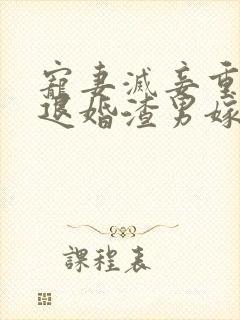 寵妻滅妾重
退婚渣男嫁
課程表